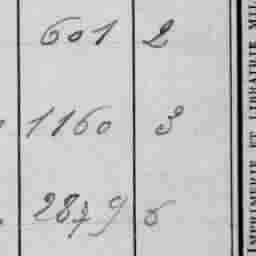 601 2
1160 3
2879 6
IMPRIMERIE ET LIBRAIRIE MIL